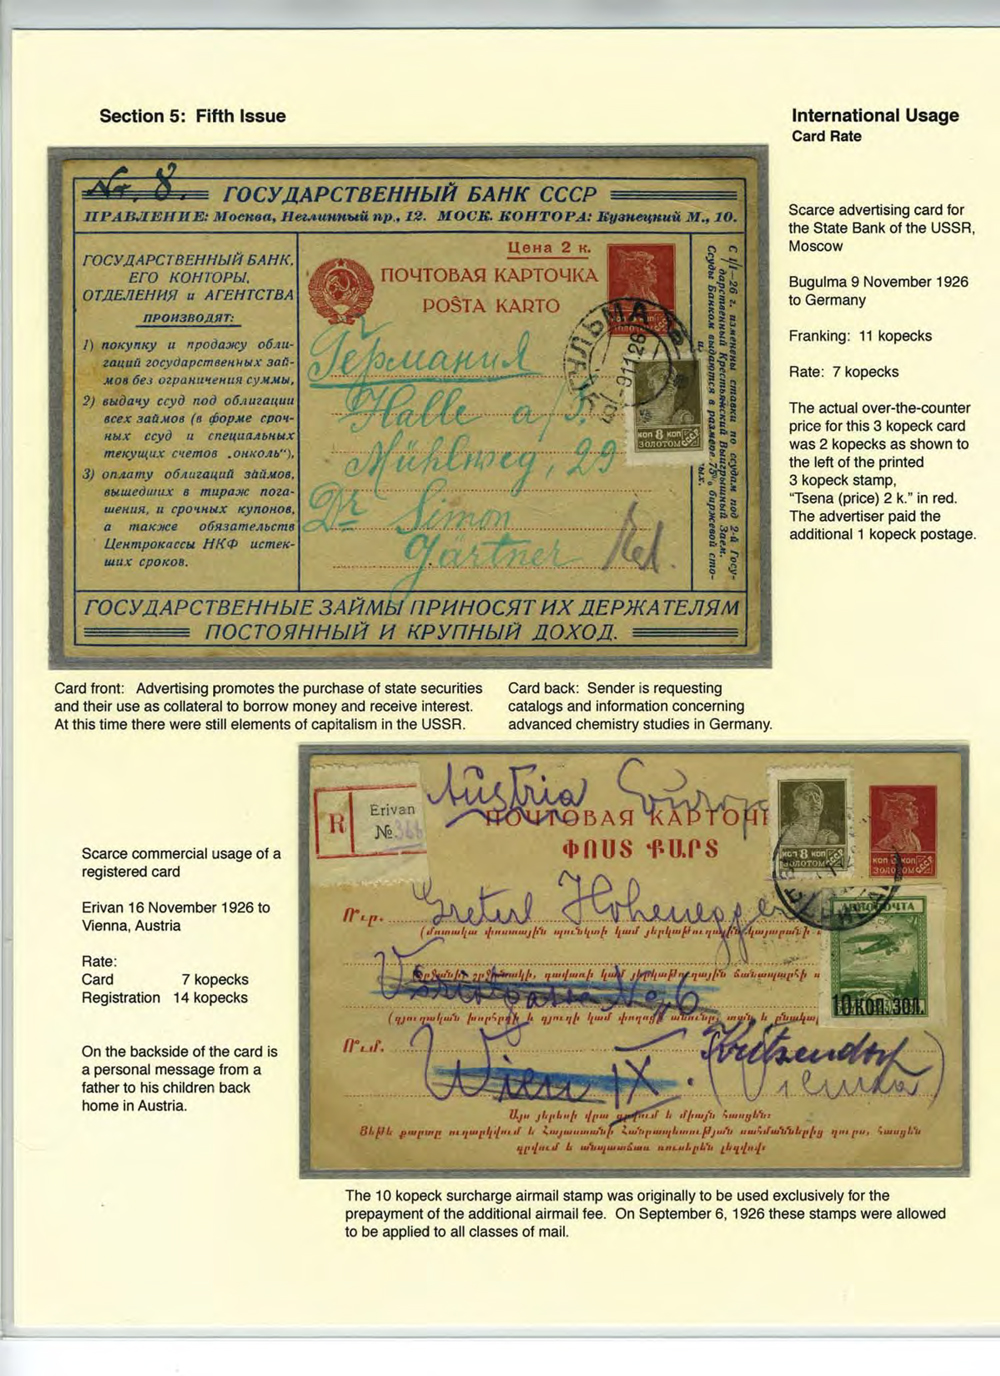 Section 5: Fifth Issue
International Usage
Card Rate
Nr. 8.
ГОСУДАРСТВЕННЫЙ БАНК СССР
ПРАВЛЕНИЕ: Москва, Неглинный пр., 12. МОСК. КОНТОРА: Кузнецкий М., 10.
ГОСУДАРСТВЕННЫЙ БАНК,
ЕГО КОНТОРЫ,
ОТДЕЛЕНИЯ и АГЕНТСТВА
ПРОИЗВОДЯТ:
1) покупку и продажу обли-
гаций государственных зай-
мов без ограничения суммы,
2) выдачу ссуд под облигации
всех займов (в форме сроч-
ных ссуд и специальных
текущих счетов „онколь"),
3) оплату облигаций займов,
вышедших в тираж пога-
шения, и срочных купонов,
а также обязательств
Центрокассы НКФ истек-
ших сроков.
Цена 2 к.
ПОЧТОВАЯ КАРТОЧКА
POŜTA KARTO
БУГУЛЬМА
-9 11 26
КОП 8 КОП
ЗОЛОТОМ
Германия
Halle a/S.
Mühlweg, 29
Dr Simon
Gärtner
С 1/I—26 г. изменены ставки по ссудам под 2-й Госу-
дарственный Крестьянский Выигрышный Заем.
Ссуды Банком выдаются в размере 75% биржевой сто-
ГОСУДАРСТВЕННЫЕ ЗАЙМЫ ПРИНОСЯТ ИХ ДЕРЖАТЕЛЯМ
ПОСТОЯННЫЙ И КРУПНЫЙ ДОХОД.
Scarce advertising card for
the State Bank of the USSR,
Moscow
Bugulma 9 November 1926
to Germany
Franking: 11 kopecks
Rate: 7 kopecks
The actual over-the-counter
price for this 3 kopeck card
was 2 kopecks as shown to
the left of the printed
3 kopeck stamp,
“Tsena (price) 2 k.” in red.
The advertiser paid the
additional 1 kopeck postage.
Card front: Advertising promotes the purchase of state securities
and their use as collateral to borrow money and receive interest.
At this time there were still elements of capitalism in the USSR.
Card back: Sender is requesting
catalogs and information concerning
advanced chemistry studies in Germany.
Scarce commercial usage of a
registered card
Erivan 16 November 1926 to
Vienna, Austria
Rate:
Card 7 kopecks
Registration 14 kopecks
On the backside of the card is
a personal message from a
father to his children back
home in Austria.
R
Erivan
№ 366
Austria Europa
ПОЧТОВАЯ КАРТОЧ
ՓՈՍՏ ՔԱՐՏ
КОП 8 КОП
ЗОЛОТОМ
Greterl Hohenegger
Ո՞ւր.
10 КОП. ЗОЛ.
No. 6
Ո՞ւմ.
Wien IX.
Kritzendorf
Այս յերեսի վրա գրվում է միայն հասցեն:
Յեթե քարտը ուղարկվում է Հայաստանի Հանրապետության սահմաններից դուրս, հասցեն
գրվում է անպատճառ ռուսերեն լեզվով:
The 10 kopeck surcharge airmail stamp was originally to be used exclusively for the
prepayment of the additional airmail fee. On September 6, 1926 these stamps were allowed
to be applied to all classes of mail.